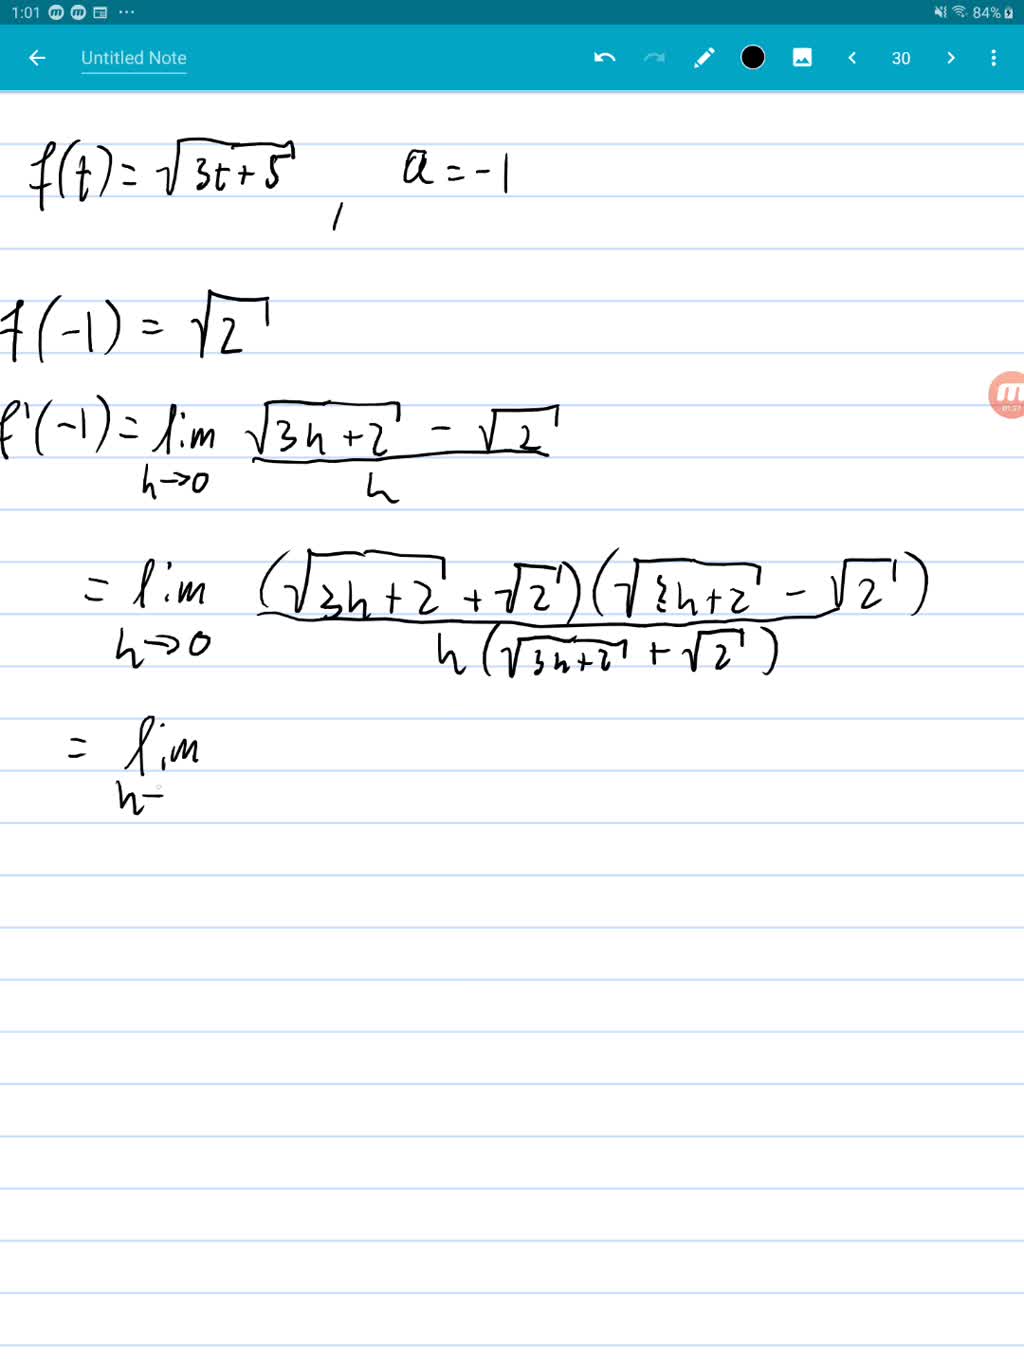 1:01 ... 84%
Untitled Note 30
f(t) = √(3t+5) , a = -1
f(-1) = √2
f'(-1) = lim h→0 (√(3h+2) - √2) / h
= lim h→0 (√(3h+2) + √2)(√(3h+2) - √2) / h(√(3h+2) + √2)
= lim h-
m 01:37